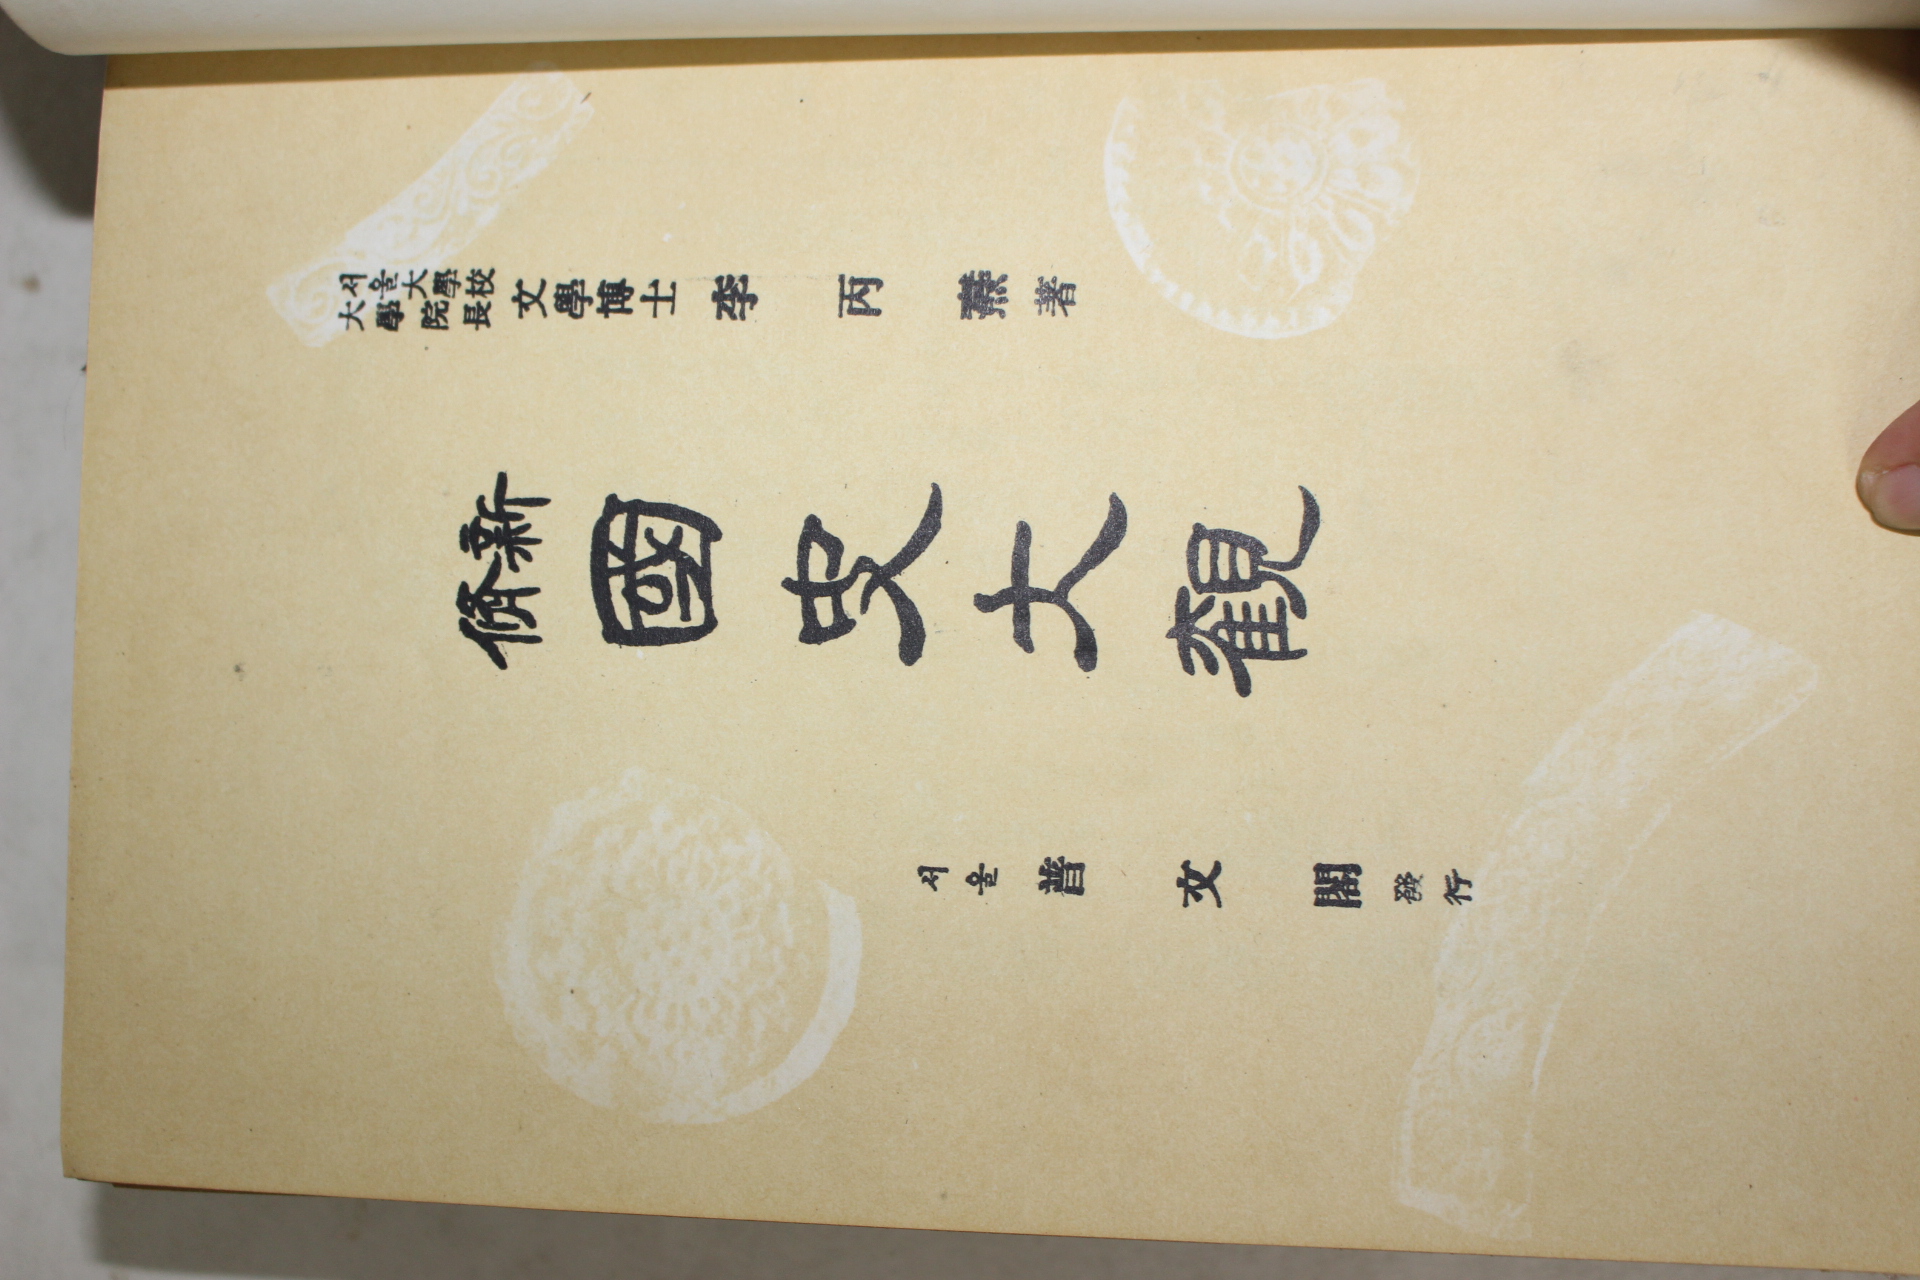 서울大學校
大學院長
文學博士 李丙燾 著
新修
國史大觀
서울 普文閣 發行